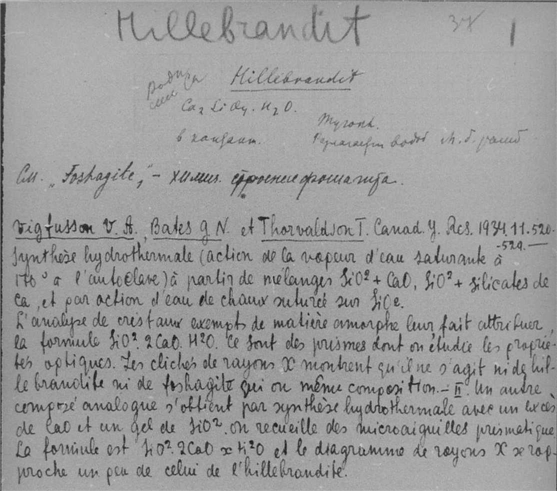 Hillebrandit
37 1
Hillebrandit
Ca₂ SiO₄. H₂O.
См. "Foshagite" – химич. строение фошагита.
Vigfusson V. A., Bates G N. et Thorvaldson T. Canad. Y. Res. 1934. 11. 520-
-529.-
Synthèse hydrothermale (action de la vapeur d'eau saturante à
170° à l'autoclave) à partir de mélanges SiO² + CaO, SiO² + silicates de
Ca, et par action d'eau de chaux saturée sur SiO².
L'analyse de cristaux exempts de matière amorphe leur fait attribuer
la formule SiO² 2CaO. H²O. Ce sont des prismes dont on étudie les proprié-
tés optiques. Les clichés de rayons X montrent qu'il ne s'agit ni de hil-
lebrandite ni de foshagite qui on même composition. – II. Un autre
composé analogue s'obtient par synthèse hydrothermale avec un excès
de CaO et un gel de SiO². on recueille des microaiguilles prismatique
La formule est SiO² 2CaO x H²O et le diagramme de rayons X se rap-
proche un peu de celui de l'hillebrandite.